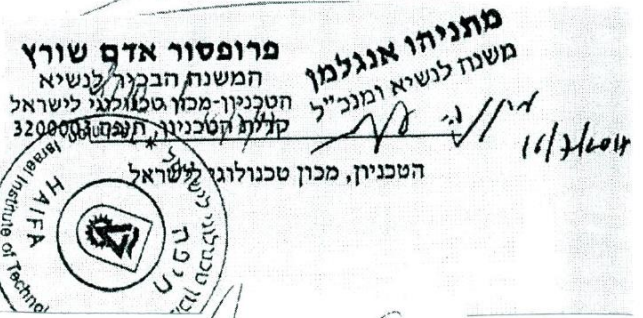 פרופסור אדם שורץ
המשנה הבכיר לנשיא
הטכניון-מכון טכנולוגי לישראל
קרית הטכניון, חיפה 3200003
מתניהו אנגלמן
משנה לנשיא ומנכ"ל
הטכניון, מכון טכנולוגי לישראל
Israel Institute of Technol
HAIFA
חיפה
מכון טכנולוגי לישראל